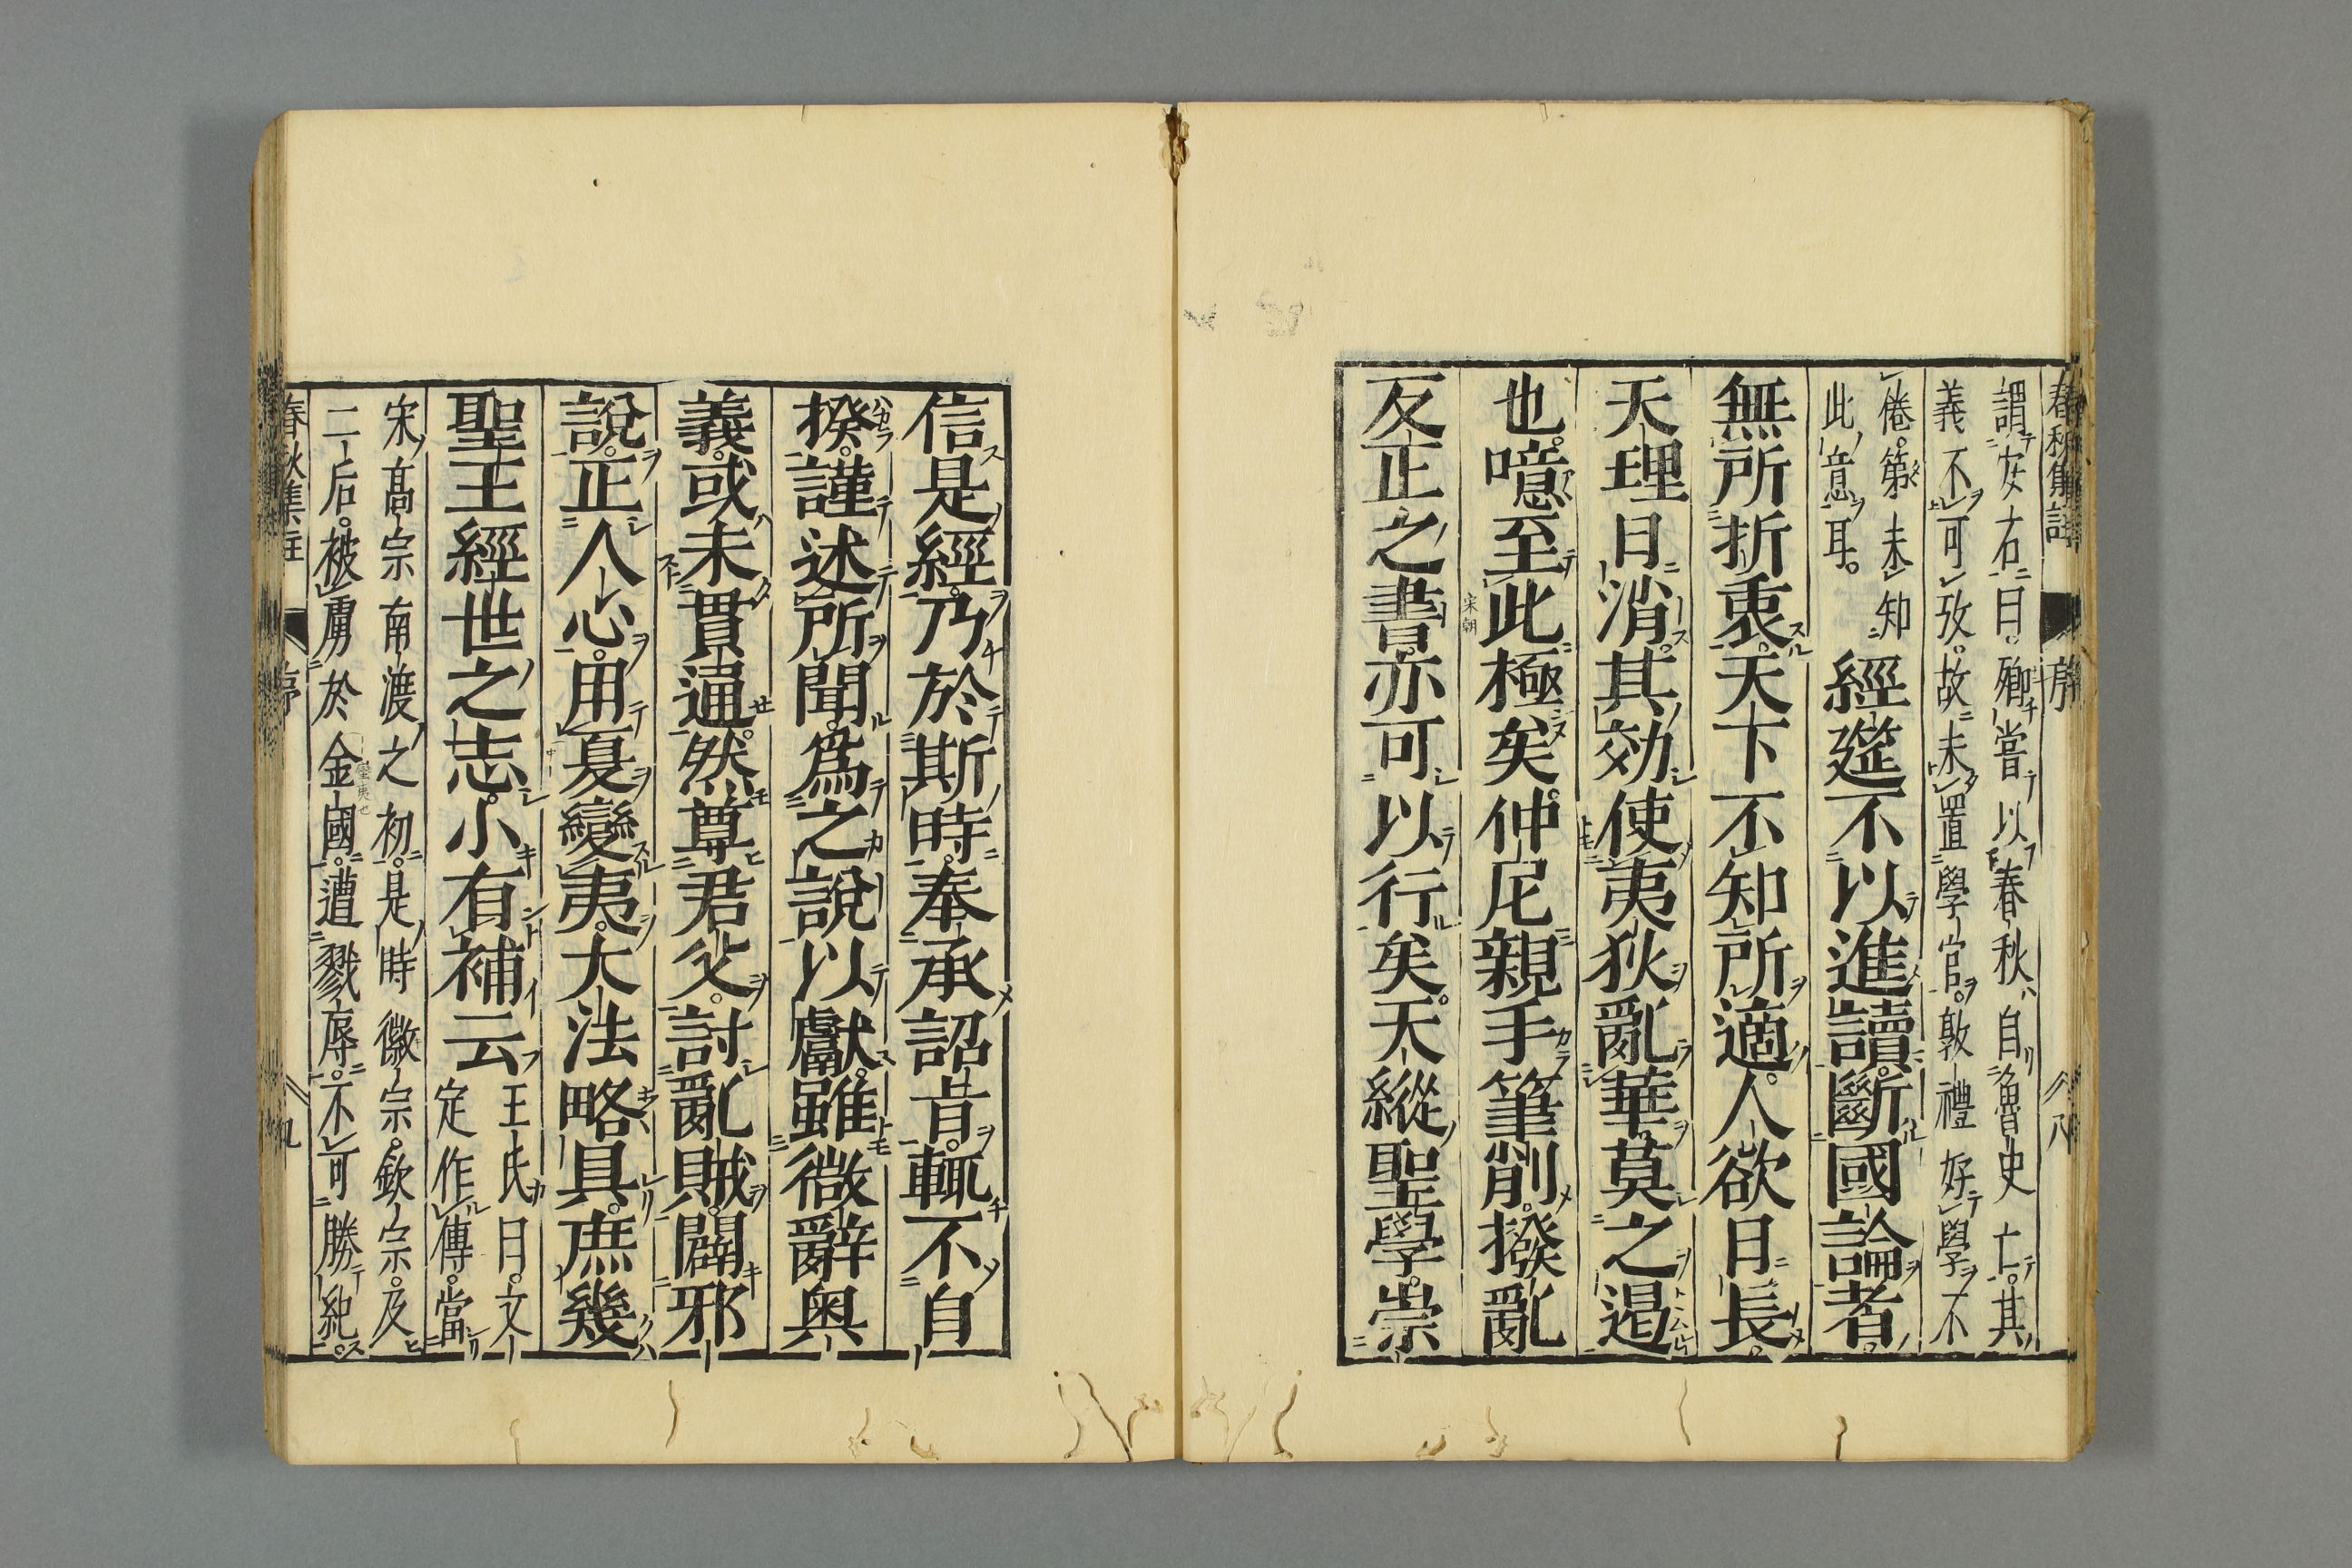 春秋集註 序 八
謂安石曰。卿嘗以春秋自魯史亡。其
義不可攷。故未置學官。敦禮好學不
倦。第未知
此意耳。
經筵不以進讀。斷國論者。
無所折衷。天下不知所適。人欲日長。
天理日消。其効使夷狄亂華莫之遏
也。噫至此極矣。仲尼親手筆削。撥亂
宋朝
反正之書。亦可以行矣。天縱聖學。崇
信是經。乃於斯時。奉承詔旨。輒不自
揆。謹述所聞。爲之說以獻。雖微辭奥
義。或未貫通。然尊君父。討亂賊。闢邪
說。正人心。用夏變夷。大法略具。庶幾
聖王經世之志。小有補云
王氏曰。文
定作傳。當
宋高宗南渡之初。是時徽宗。欽宗。及
二后。被虜於金國。遭戮辱。不可勝紀。
春秋集註 序 九